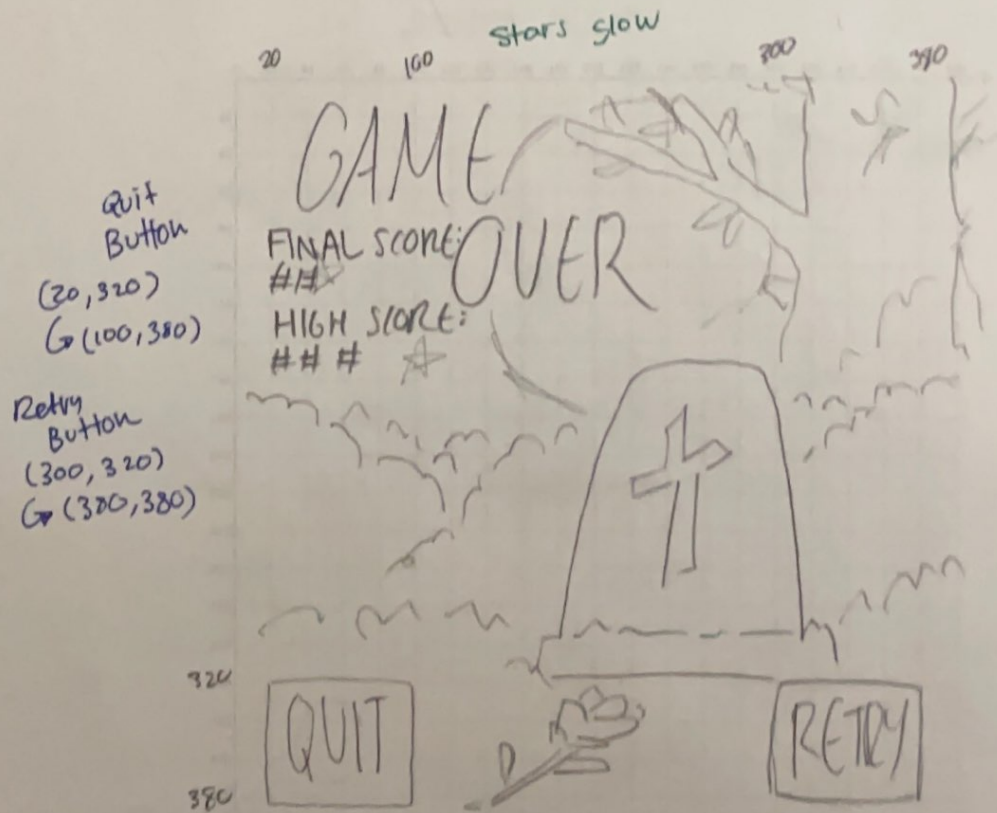 stars slow
20 100 300 380
GAME
OVER
FINAL SCORE:
###
HIGH SCORE:
###
Quit
Button
(20,320)
(100,380)
Retry
Button
(300,320)
(380,380)
320
QUIT
RETRY
380